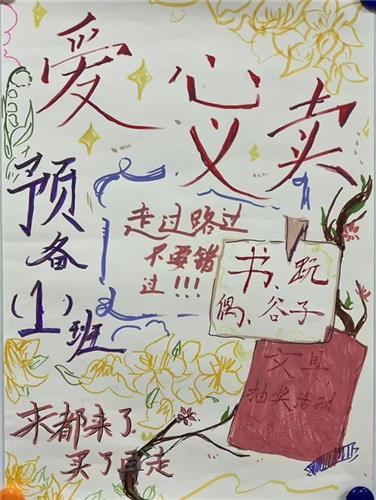 爱心义卖
预备
(1)班
走过路过
不要错
过!!!
书、玩
偶、谷子
抽奖活动
来都来了
买了再走